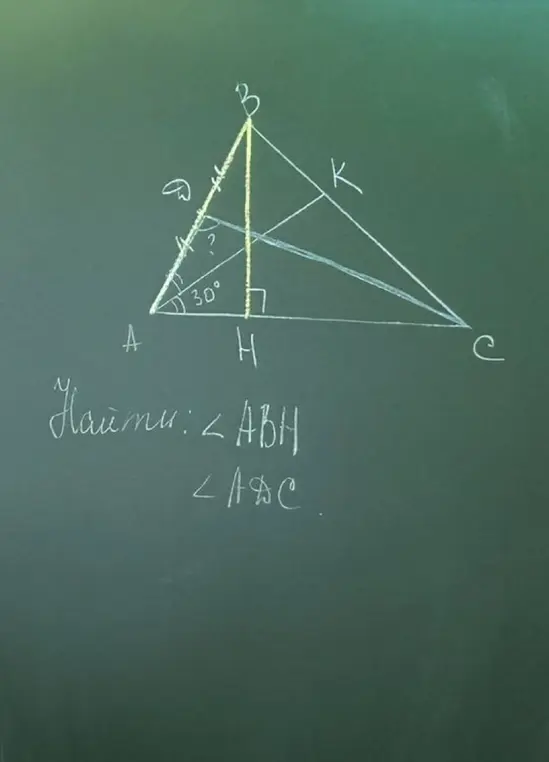 B
K
D
?
30°
A
H
C
Найти: ∠ABH
∠ADC.